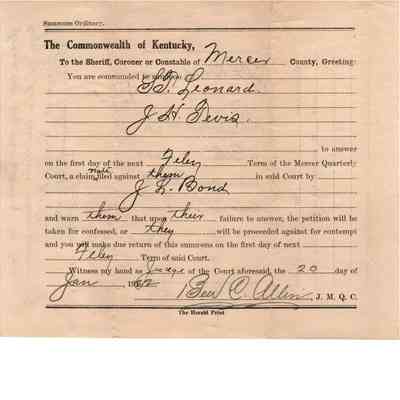 Summons Ordinary.
The Commonwealth of Kentucky,
To the Sheriff, Coroner or Constable of Mercer County, Greeting:
You are commanded to summon
Leonard.
J. H. Devis.
to answer
on the first day of the next Feby Term of the Mercer Quarterly
Court, a claim filed against them in said Court by
J. L. Bond
and warn them that upon their failure to answer, the petition will be
taken for confessed, or they will be proceeded against for contempt
and you will make due return of this summons on the first day of next
Feby Term of said Court.
Witness my hand as Judge of the Court aforesaid, the 20 day of
Jan Ben C. Allin, J. M. Q. C.
The Herald Print